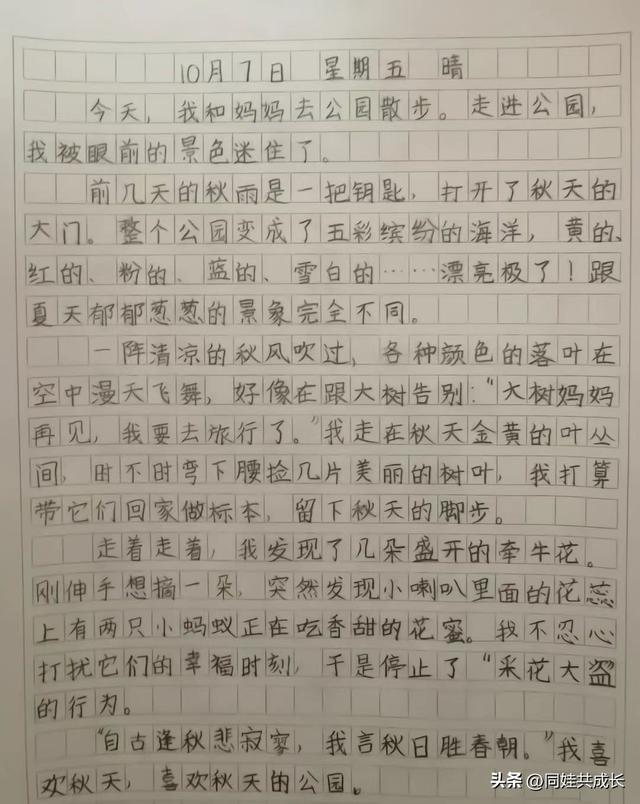 10月7日 星期五 晴
今天，我和妈妈去公园散步。走进公园，
我被眼前的景色迷住了。
前几天的秋雨是一把钥匙，打开了秋天的
大门。整个公园变成了五彩缤纷的海洋，黄的、
红的、粉的、蓝的、雪白的……漂亮极了！跟
夏天郁郁葱葱的景象完全不同。
一阵清凉的秋风吹过，各种颜色的落叶在
空中漫天飞舞，好像在跟大树告别："大树妈妈
再见，我要去旅行了。"我走在秋天金黄的叶丛
间，时不时弯下腰捡几片美丽的树叶，我打算
带它们回家做标本，留下秋天的脚步。
走着走着，我发现了几朵盛开的牵牛花。
刚伸手想摘一朵，突然发现小喇叭里面的花蕊
上有两只小蚂蚁正在吃香甜的花蜜。我不忍心
打扰它们的幸福时刻，于是停止了"采花大盗
的行为。
"自古逢秋悲寂寥，我言秋日胜春朝。"我喜
欢秋天，喜欢秋天的公园。
头条 @同娃共成长